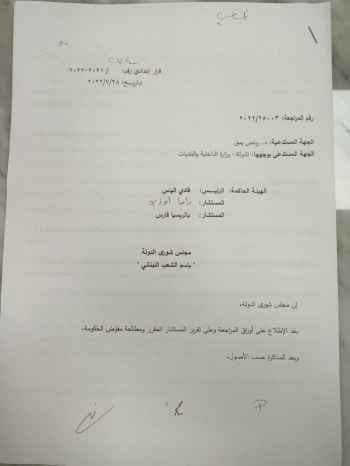 قرار إعدادي رقم: /٢٠٢١-٢٠٢٢
التاريخ: ٢٠٢٢/٧/٢٨
رقم المراجعة: ٢٠٢٢/٢٥٠٠٣
الجهة المستدعية:
الجهة المستدعى بوجهها: الدولة - وزارة الداخلية والبلديات
الهيئة الحاكمة: الرئيس: فادي الياس
المستشار:
المستشار: باتريسيا فارس
مجلس شورى الدولة
" باسم الشعب اللبناني "
إن مجلس شورى الدولة،
بعد الإطلاع على أوراق المراجعة وعلى تقرير المستشار المقرر ومطالعة مفوض الحكومة،
وبعد المذاكرة حسب الأصول،